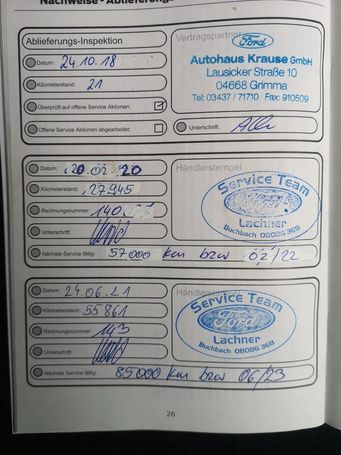 Nachweise - Ablieferungs
Ablieferungs-Inspektion
Vertragspartner
Datum: 24.10.18
Kilometerstand: 21
Überprüft auf offene Service Aktionen:
Offene Service Aktionen abgearbeitet:
Ford
Autohaus Krause GmbH
Lausicker Straße 10
04668 Grimma
Tel: 03437 / 71710 Fax: 910509
Unterschrift:
Datum: 20.02.20
Kilometerstand: 27945
Rechnungsnummer: 140
Unterschrift:
Nächste Service fällig: 57000 km bzw 02/22
Händlerstempel
Service Team
Ford
Lachner
Buchbach 08086 368
Datum: 24.06.21
Kilometerstand: 55861
Rechnungsnummer: 143
Unterschrift:
Nächste Service fällig: 85000 km bzw 06/23
Service Team
Ford
Lachner
Buchbach 08086 368
26